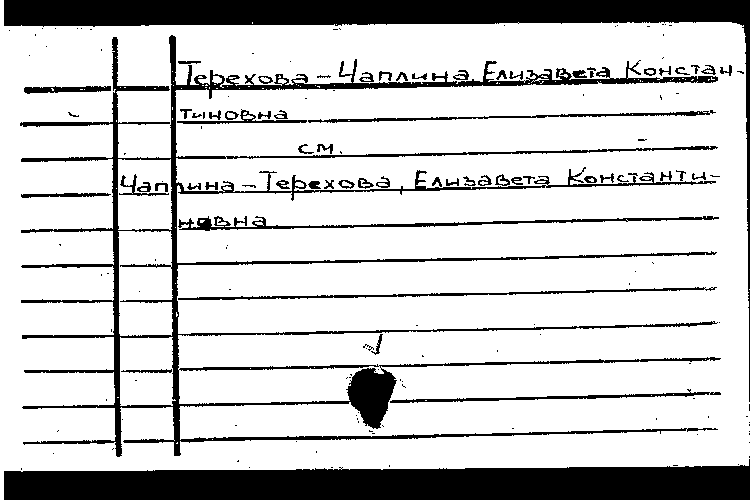 Терехова-Чаплина, Елизавета Констан-
тиновна
см.
Чаплина-Терехова, Елизавета Константи-
новна